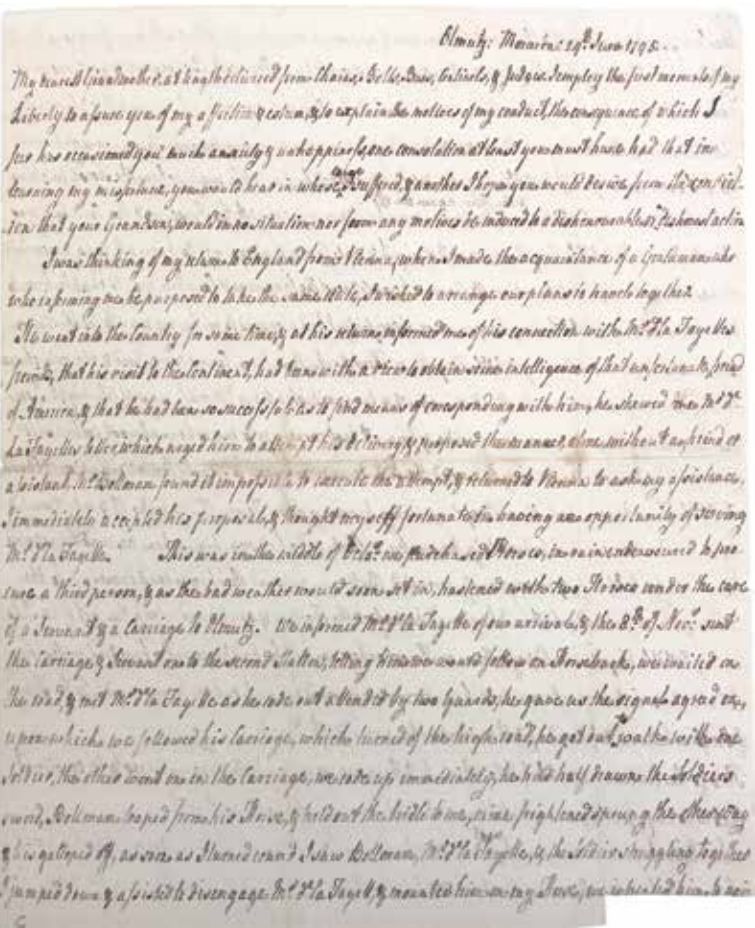 Olmutz: Moravia: 24th June 1795.
My dearest Grandmother, at length delivered from Chains, Bolts, Bars, Centinels, & Judges I employ the first moments of my
Liberty to assure you of my affection & esteem, & to explain the motives of my conduct, the consequence of which I
fear has occasioned you much anxiety & unhappiness, one consolation at least you must have had that in
learning my misfortune, you would hear in whose I suffered, & another I hope you would derive from the convict-
ion that your Grandson, would in no situation nor from any motives be induced to a dishonourable or action
I was thinking of my return to England from Vienna, where I made the acquaintance of a Gentleman who
who informing me he purposed to take the same Route, I wished to arrange our plans to travel together.
He went into the Country for some time, & at his return, informed me of his connection with Mr. d'la Fayettes
friends, that his visit to the Continent, had been with a view to obtain some intelligence of that unfortunate friend
of America, & that he had been so successful as to find means of corresponding with him, he shewed me Mr. d'
La Fayettes letter, which urged him to attempt his delivery, & proposed the manner, alone without a friend or
assistant, Mr. Bollman found it impossible to execute the attempt, & returned to Vienna to ask my assistance,
I immediately accepted his proposal, & thought myself fortunate in having an opportunity of serving
Mr. d'la Fayette. This was in the middle of Octbr. we purchased Horses, in vain endeavoured to pro-
cure a third person, & as the bad weather would soon set in, hastened with two Horses under the care
of a Servant & a Carriage to Olmutz. We informed Mr. d'la Fayette of our arrival, & the 8th. of Novr. sent
the Carriage & Servant on to the second Station, telling him we would follow on Horseback, we waited on
the road & met Mr. d'la Fayette as he rode out attended by two Guards, he gave us the signal agreed on,
upon which we followed his Carriage, which turned of the high road, he got out, walked with one
Soldier, the other went on in the Carriage, we rode up immediately, he had half drawn the Soldiers
sword, Bollman leaped from his Horse, & held out the bridle to me, mine frightened sprung the other way
& his galloped off, as soon as I turned round I saw Bollman, Mr. d'la Fayette, & the Soldier struggling together
I jumped down & assisted to disengage Mr. d'la Fayette, & mounted him on my Horse, we him to